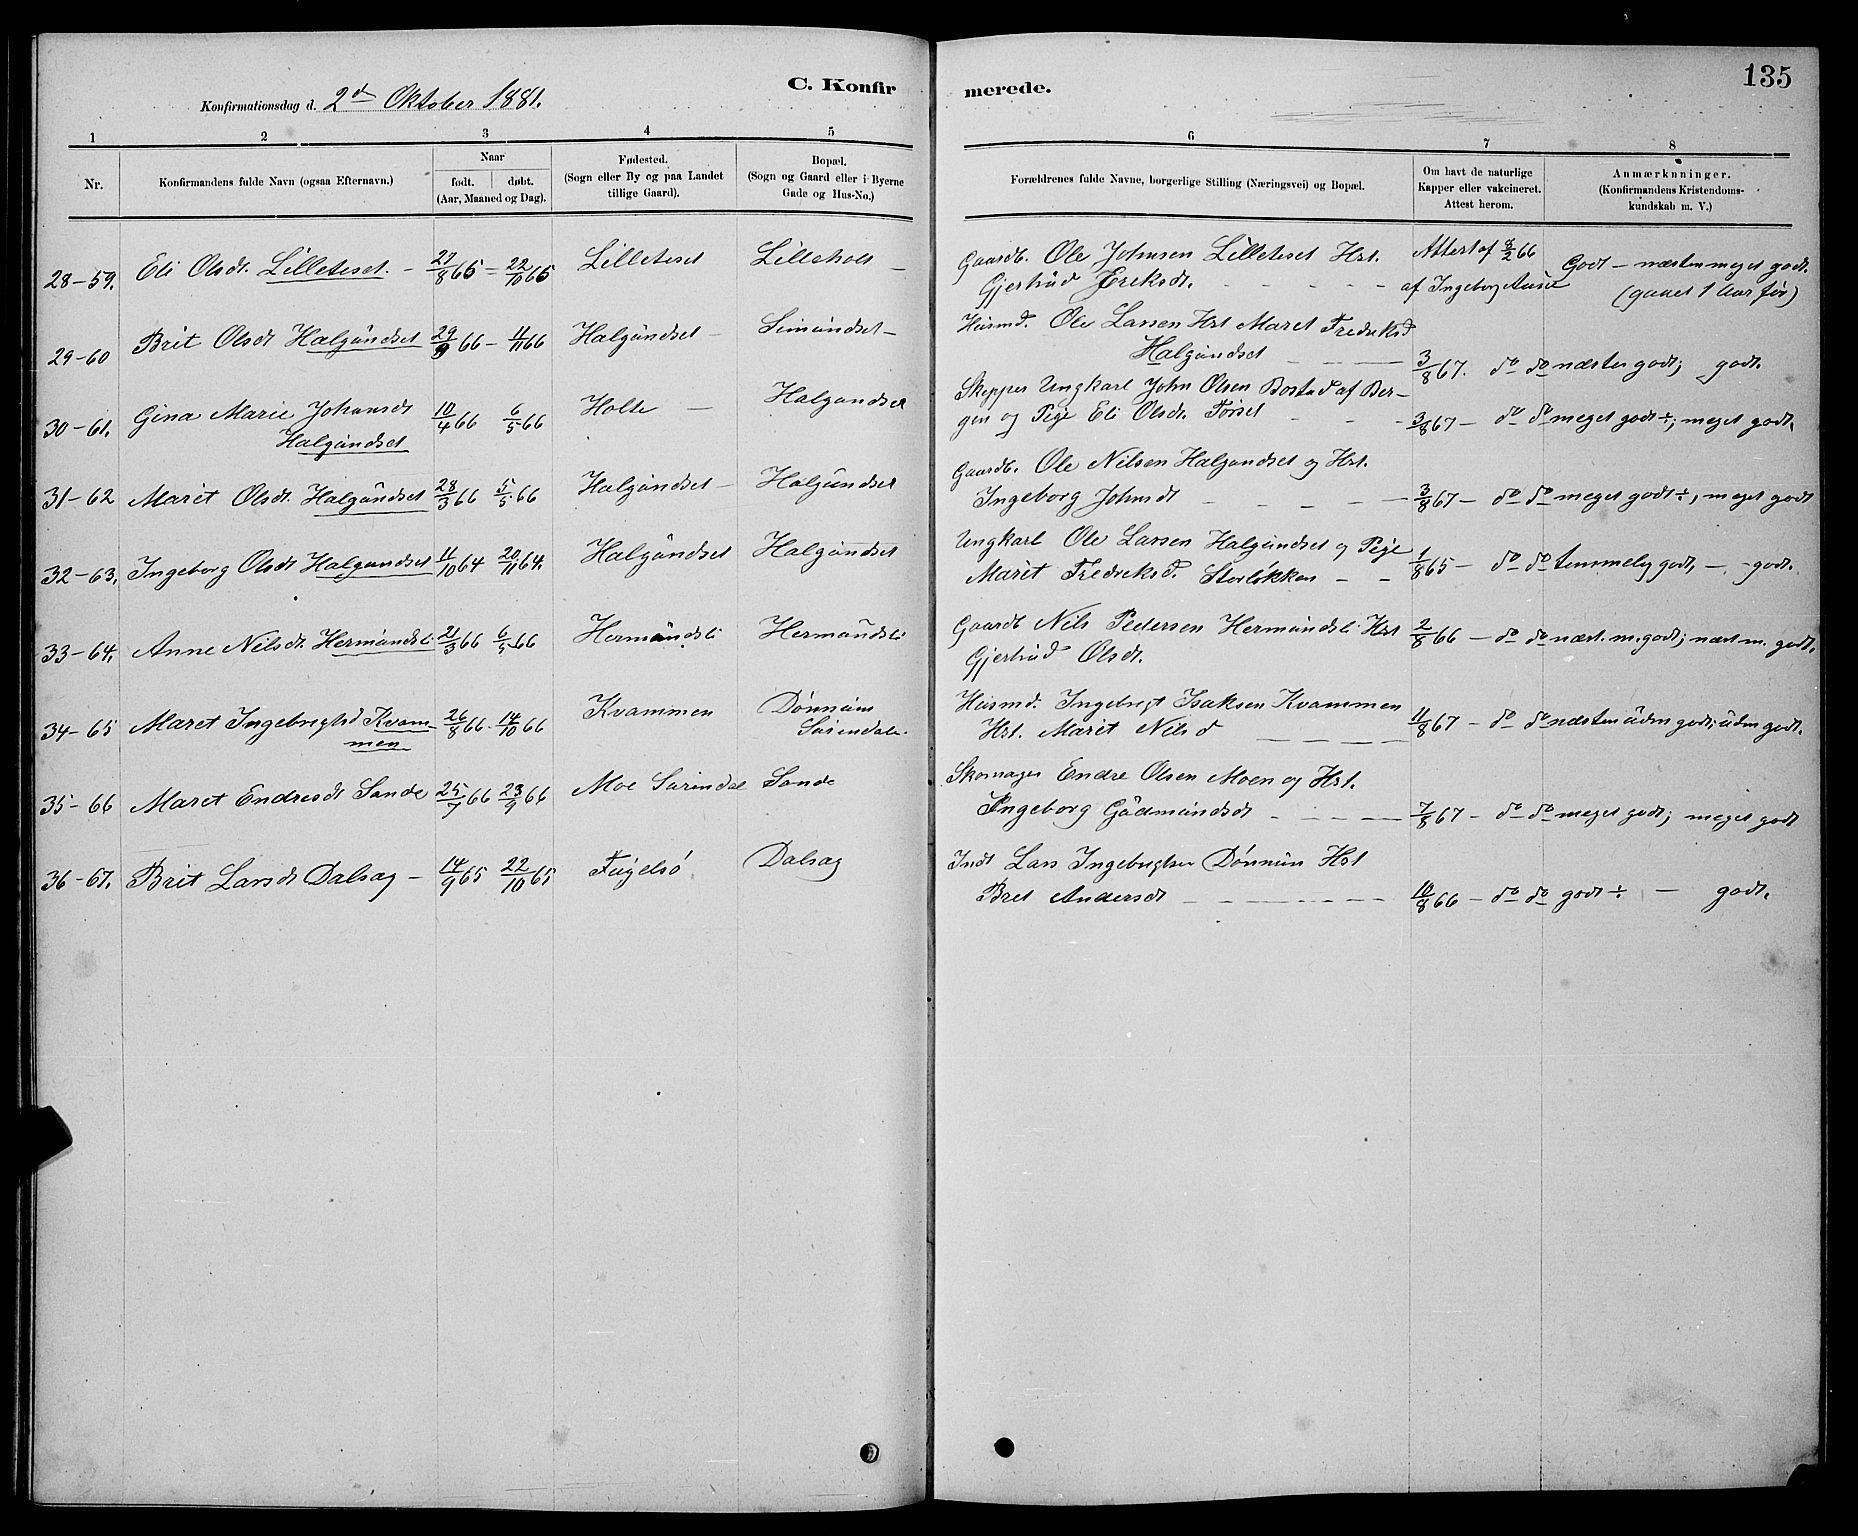 C. Konfir
Konfirmationsdag d. 2d Oktober 1881.
1 2 3 4 5
Nr.
Konfirmandens fulde Navn (ogsaa Efternavn.)
Naar
født. døbt.
(Aar, Maaned og Dag).
Fødested.
(Sogn eller By og paa Landet
tillige Gaard).
Bopæl.
(Sogn og Gaard eller i Byerne
Gade og Hus-No.)
28-59. Eli Olsdt. Lilleteset. - 27/8 65 - 22/10 65 Lilleteset Lilleholt -
29-60 Brit Olsdt Halgundset 29/9 66 - 11/11 66 Halgundset - Simundset -
30-61. Gina Marie Johansdt 10/4 66 6/5 66 Holte - Halgundset
Halgundset
31-62 Marit Olsdt. Halgundset 28/3 66 5/5 66 Halgundset - Halgundset
32-63. Ingeborg Olsdt Halgundset 11/10 64 20/11 64. Halgundset Halgundset
33-64. Anne Nilsdt. Hermundsli 21/3 66 6/5 66 Hermundsli Hermundsli
34-65 Maret Ingebrigtsd Kvam 26/8 66 - 14/10 66 Kvammen Dønnum
men Surendal.
35-66 Maret Endresdt Sande 25/7 66 23/9 66 Moe Surendal Sande
36-67. Brit Larsdt Dalsag - 14/9 65 22/10 65 Fugelsø Dalsag
135
merede.
6 7 8
Forældrenes fulde Navne, borgerlige Stilling (Næringsvei) og Bopæl.
Om havt de naturlige
Kapper eller vakcineret.
Attest herom.
Anmærknninger.
(Konfirmandens Kristendoms-
kundskab m. V.)
Gaardb. Ole Johnsen Lilleteset Hst. Attest af 8/2 66 Godt - næsten meget godt.
Gjertrud Ereksdt. - - - - - af Ingeborg (gaaet 1 Aar før)
Husmd. Ole Larsen Hst Maret Fredriksd
Halgundset - - - 3/8 67. do do næsten godt; godt.
Skepper Ungkarl John Olsen Bostad af Ber-
gen og Pige Eli Olsdt. Tørset - - - 3/8 67 - do do meget godt ÷; meget godt.
Gaardb. Ole Nilsen Halgundset og Hst.
Ingeborg Johnsdt - - - - - 3/8 67 - do do meget godt ÷, meget godt
Ungkarl Ole Larsen Halgundset og Pige
Marit Fredreksd. Storløkken - - 1/8 65 - do do temmelig godt, - - godt.
Gaardb Nils Pedersen Hermundsli Hst 2/8 66 - do do næst. m. godt; næst m. godt.
Gjertrud Olsdt.
Husmd. Ingebrigt Isaksen Kvammen
Hst. Marit Nilsd - - - - 11/8 67 - do do næsten uden godt; uden godt.
Skomager Endre Olsen Moen og Hst.
Ingeborg Gudmundsdt - - - - 7/8 67 - do do meget godt; meget godt
Indt Lars Ingebrigtsen Dønnum Hst
Bret Andersdt - - - - - - 10/8 66 - do do godt ÷ - godt.